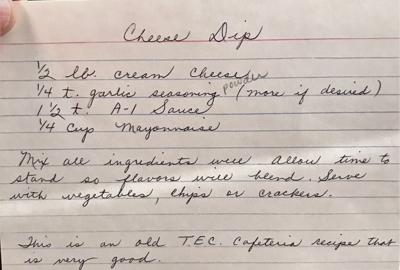 Cheese Dip
1/2 lb. cream cheese
1/4 t. garlic seasoning powder (more if desired)
1 1/2 t. A-1 Sauce
1/4 cup Mayonnaise
Mix all ingredients well Allow time to
stand so flavors will blend. Serve
with vegetables, chips or crackers.
This is an old T.E.C. Cafeteria recipe that
is very good.